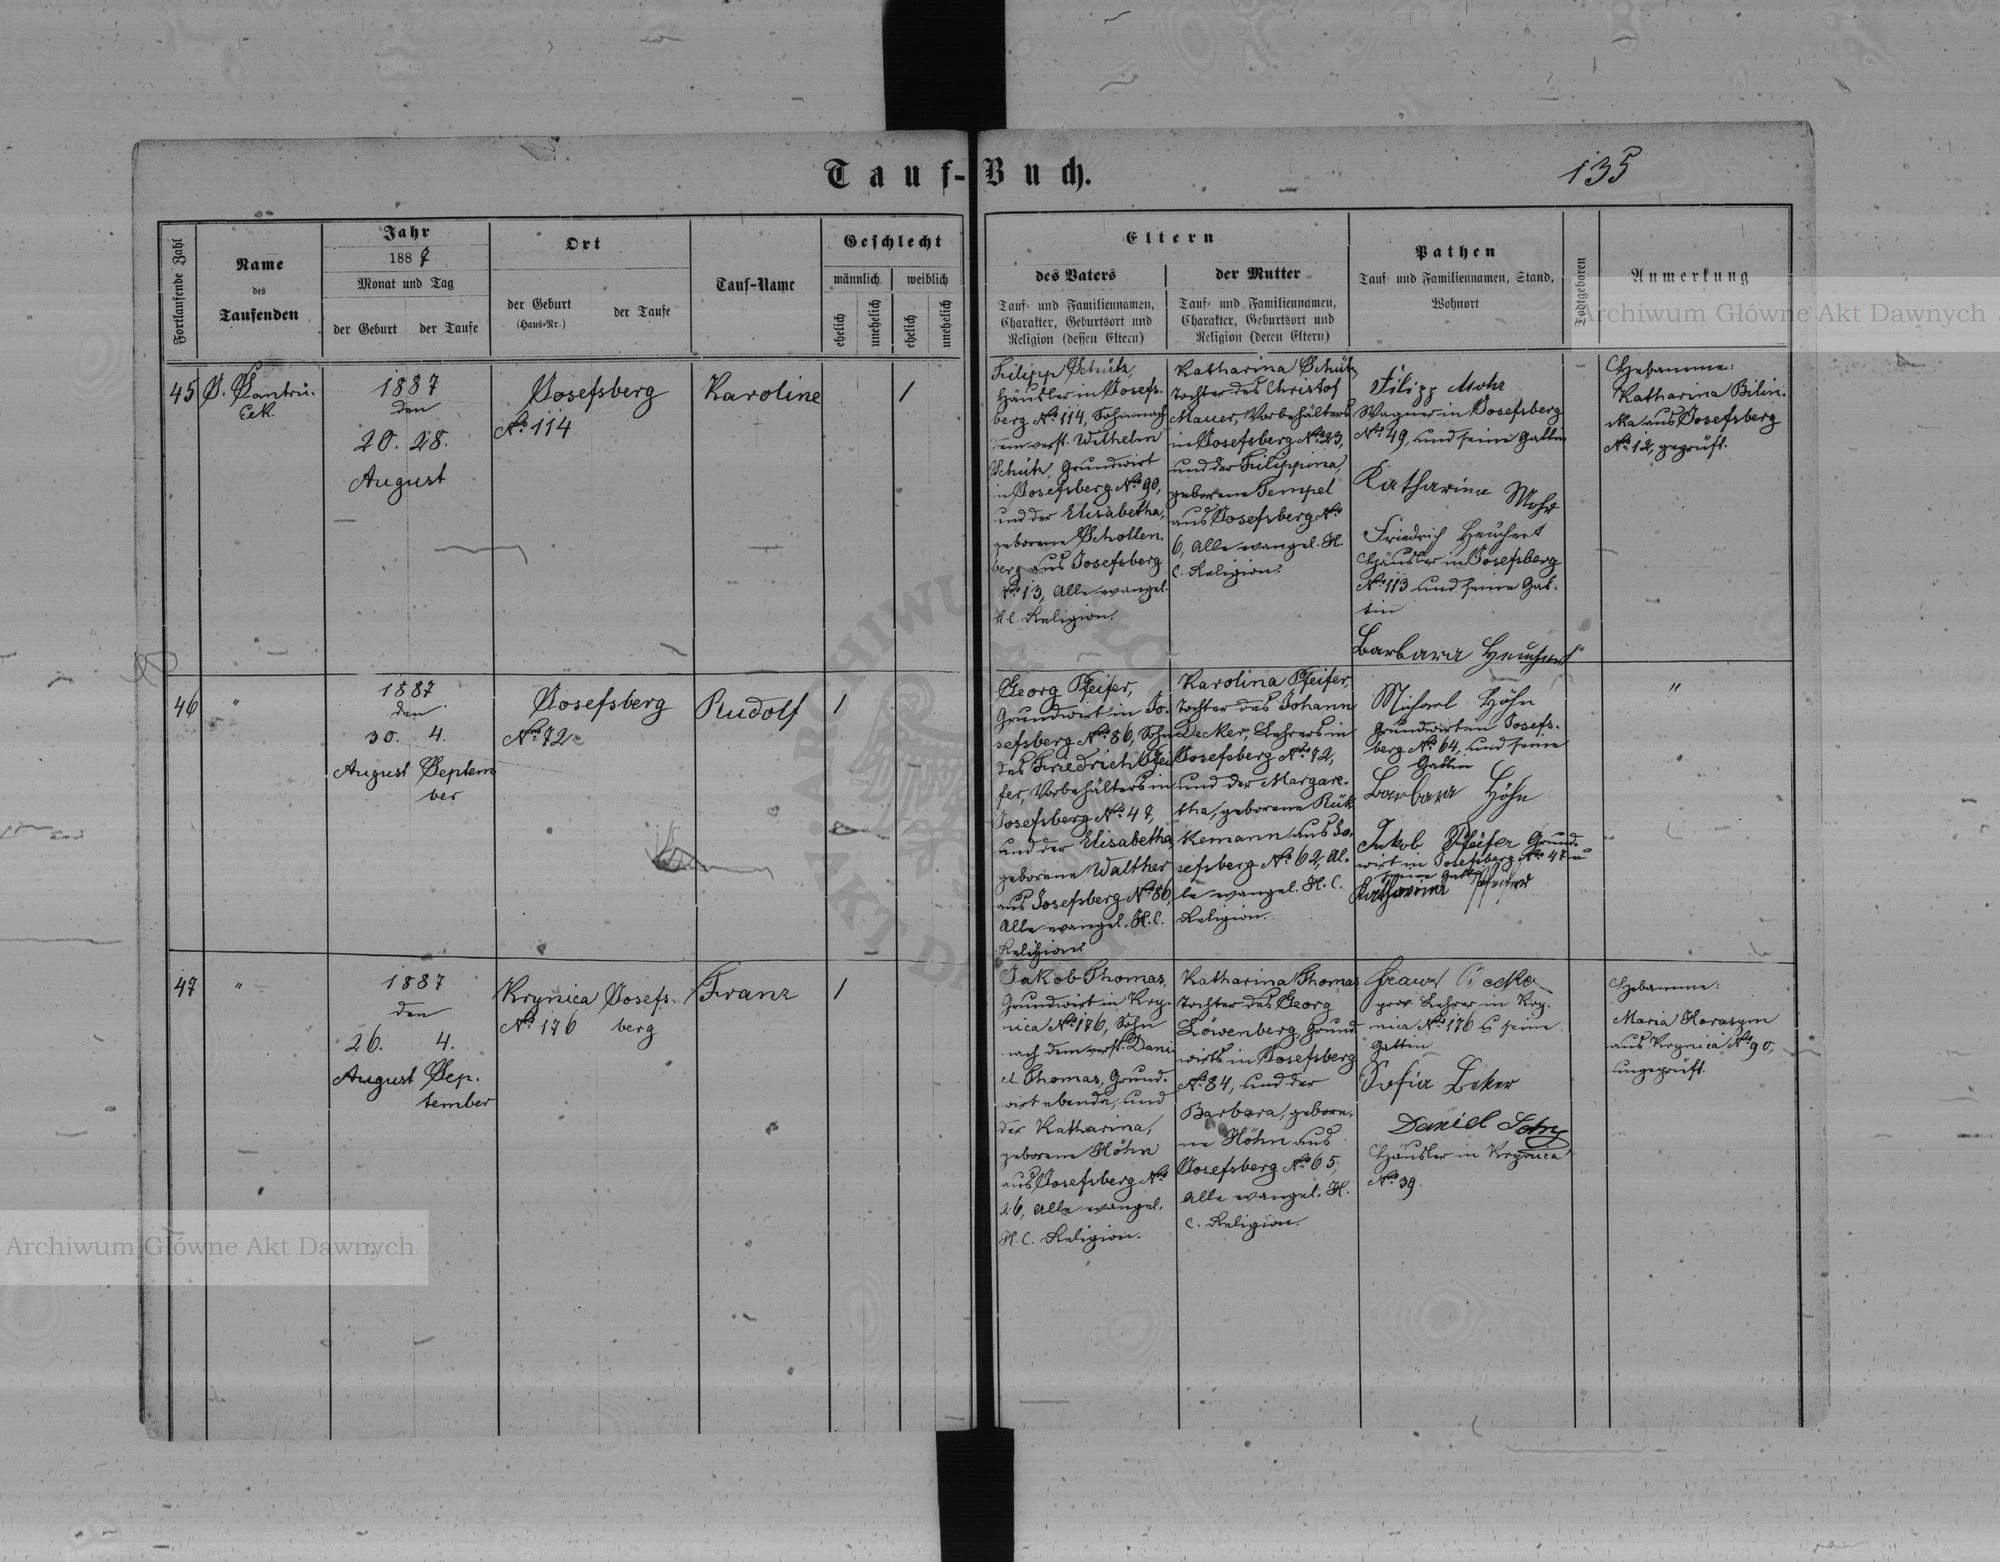 Tauf-Buch.
135
Fortlaufende Zahl
Name
des
Taufenden
Jahr
1887
Monat und Tag
der Geburt
der Taufe
Ort
der Geburt
(Haus-Nr.)
der Taufe
Tauf-Name
Geschlecht
männlich
weiblich
ehelich
unehelich
ehelich
unehelich
Eltern
des Vaters
Tauf- und Familiennamen,
Charakter, Geburtsort und
Religion (dessen Eltern)
der Mutter
Tauf- und Familiennamen,
Charakter, Geburtsort und
Religion (deren Eltern)
Pathen
Tauf- und Familiennamen, Stand,
Wohnort
Todtgeboren
Anmerkung
45
1887
den
20. 28.
August
Josefsberg
No. 114
Karoline
1
Filipp Schütz,
Häusler in Josefs-
berg No. 114, Sohn nach
dem verst. Wilhelm
Schütz, Grundwirt
in Josefsberg No. 90,
und der Elisabetha,
geborene Schollen-
berg aus Josefsberg
No. 13, Alle evangel.
H. C. Religion.
Katharina Schütz,
Tochter des Christof
Mauer, Vorbehälters
in Josefsberg No. 23,
und der Filippina,
geborene Tempel
aus Josefsberg No.
6, Alle evangel. H.
C. Religion.
Filipp Mohr
Wagner in Josefsberg
No. 49, und seine Gattin
Katharina Mohr
Friedrich Heuchert
Häusler in Josefsberg
No. 113 und seine Gat-
tin
Barbara Heuchert
Hebamme:
Katharina Bilin-
ska aus Josefsberg
No. 12, geprüft.
46
"
1887
den
30. 4.
August Septem
ber
Josefsberg
No. 72
Rudolf
1
Georg Pfeifer,
Grundwirt in Jo-
sefsberg No. 86, Sohn
des Friedrich Pfei
fer, Vorbehälters in
Josefsberg No. 47,
und der Elisabetha,
geborene Walther
aus Josefsberg No. 86,
Alle evangel. H. C.
Religion.
Karolina Pfeifer,
Tochter des Johann
Decker, Lehrers in
Josefsberg No. 72,
und der Margare-
tha, geborene Rük
kemann aus Jo-
sefsberg No. 62, Al-
le evangel. H. C.
Religion.
Michael Höhn
Grundwirt in Josefs-
berg No. 64, und seine
Gattin
Barbara Höhn
Jakob Pfeifer Grund-
wirt in Josefsberg No. 47 u
seine Gattin
Katharina Pfeifer
"
47
"
1887
den
26. 4.
August Sep-
tember
Krynica Josefs-
No. 176 berg
Franz
1
Jakob Thomas,
Grundwirt in Kry-
nica No. 176, Sohn
nach dem verst. Dani
el Thomas, Grund-
wirt ebenda, und
der Katharina,
geborene Höhn
aus Josefsberg No.
26, Alle evangel.
H. C. Religion.
Katharina Thomas
Tochter des Georg
Löwenberg, Grund-
wirts in Josefsberg
No. 84, und der
Barbara, gebore-
ne Höhn aus
Josefsberg No. 65,
Alle evangel. H.
C. Religion.
prov. Lehrer in Kry-
nica No. 176 u seine
Gattin
Sofia Beker
Daniel
Häusler in Krynica
No. 39.
Hebamme:
Maria Harasym
aus Krynica No. 90,
ungeprüft.
Archiwum Główne Akt Dawnych
Archiwum Główne Akt Dawnych